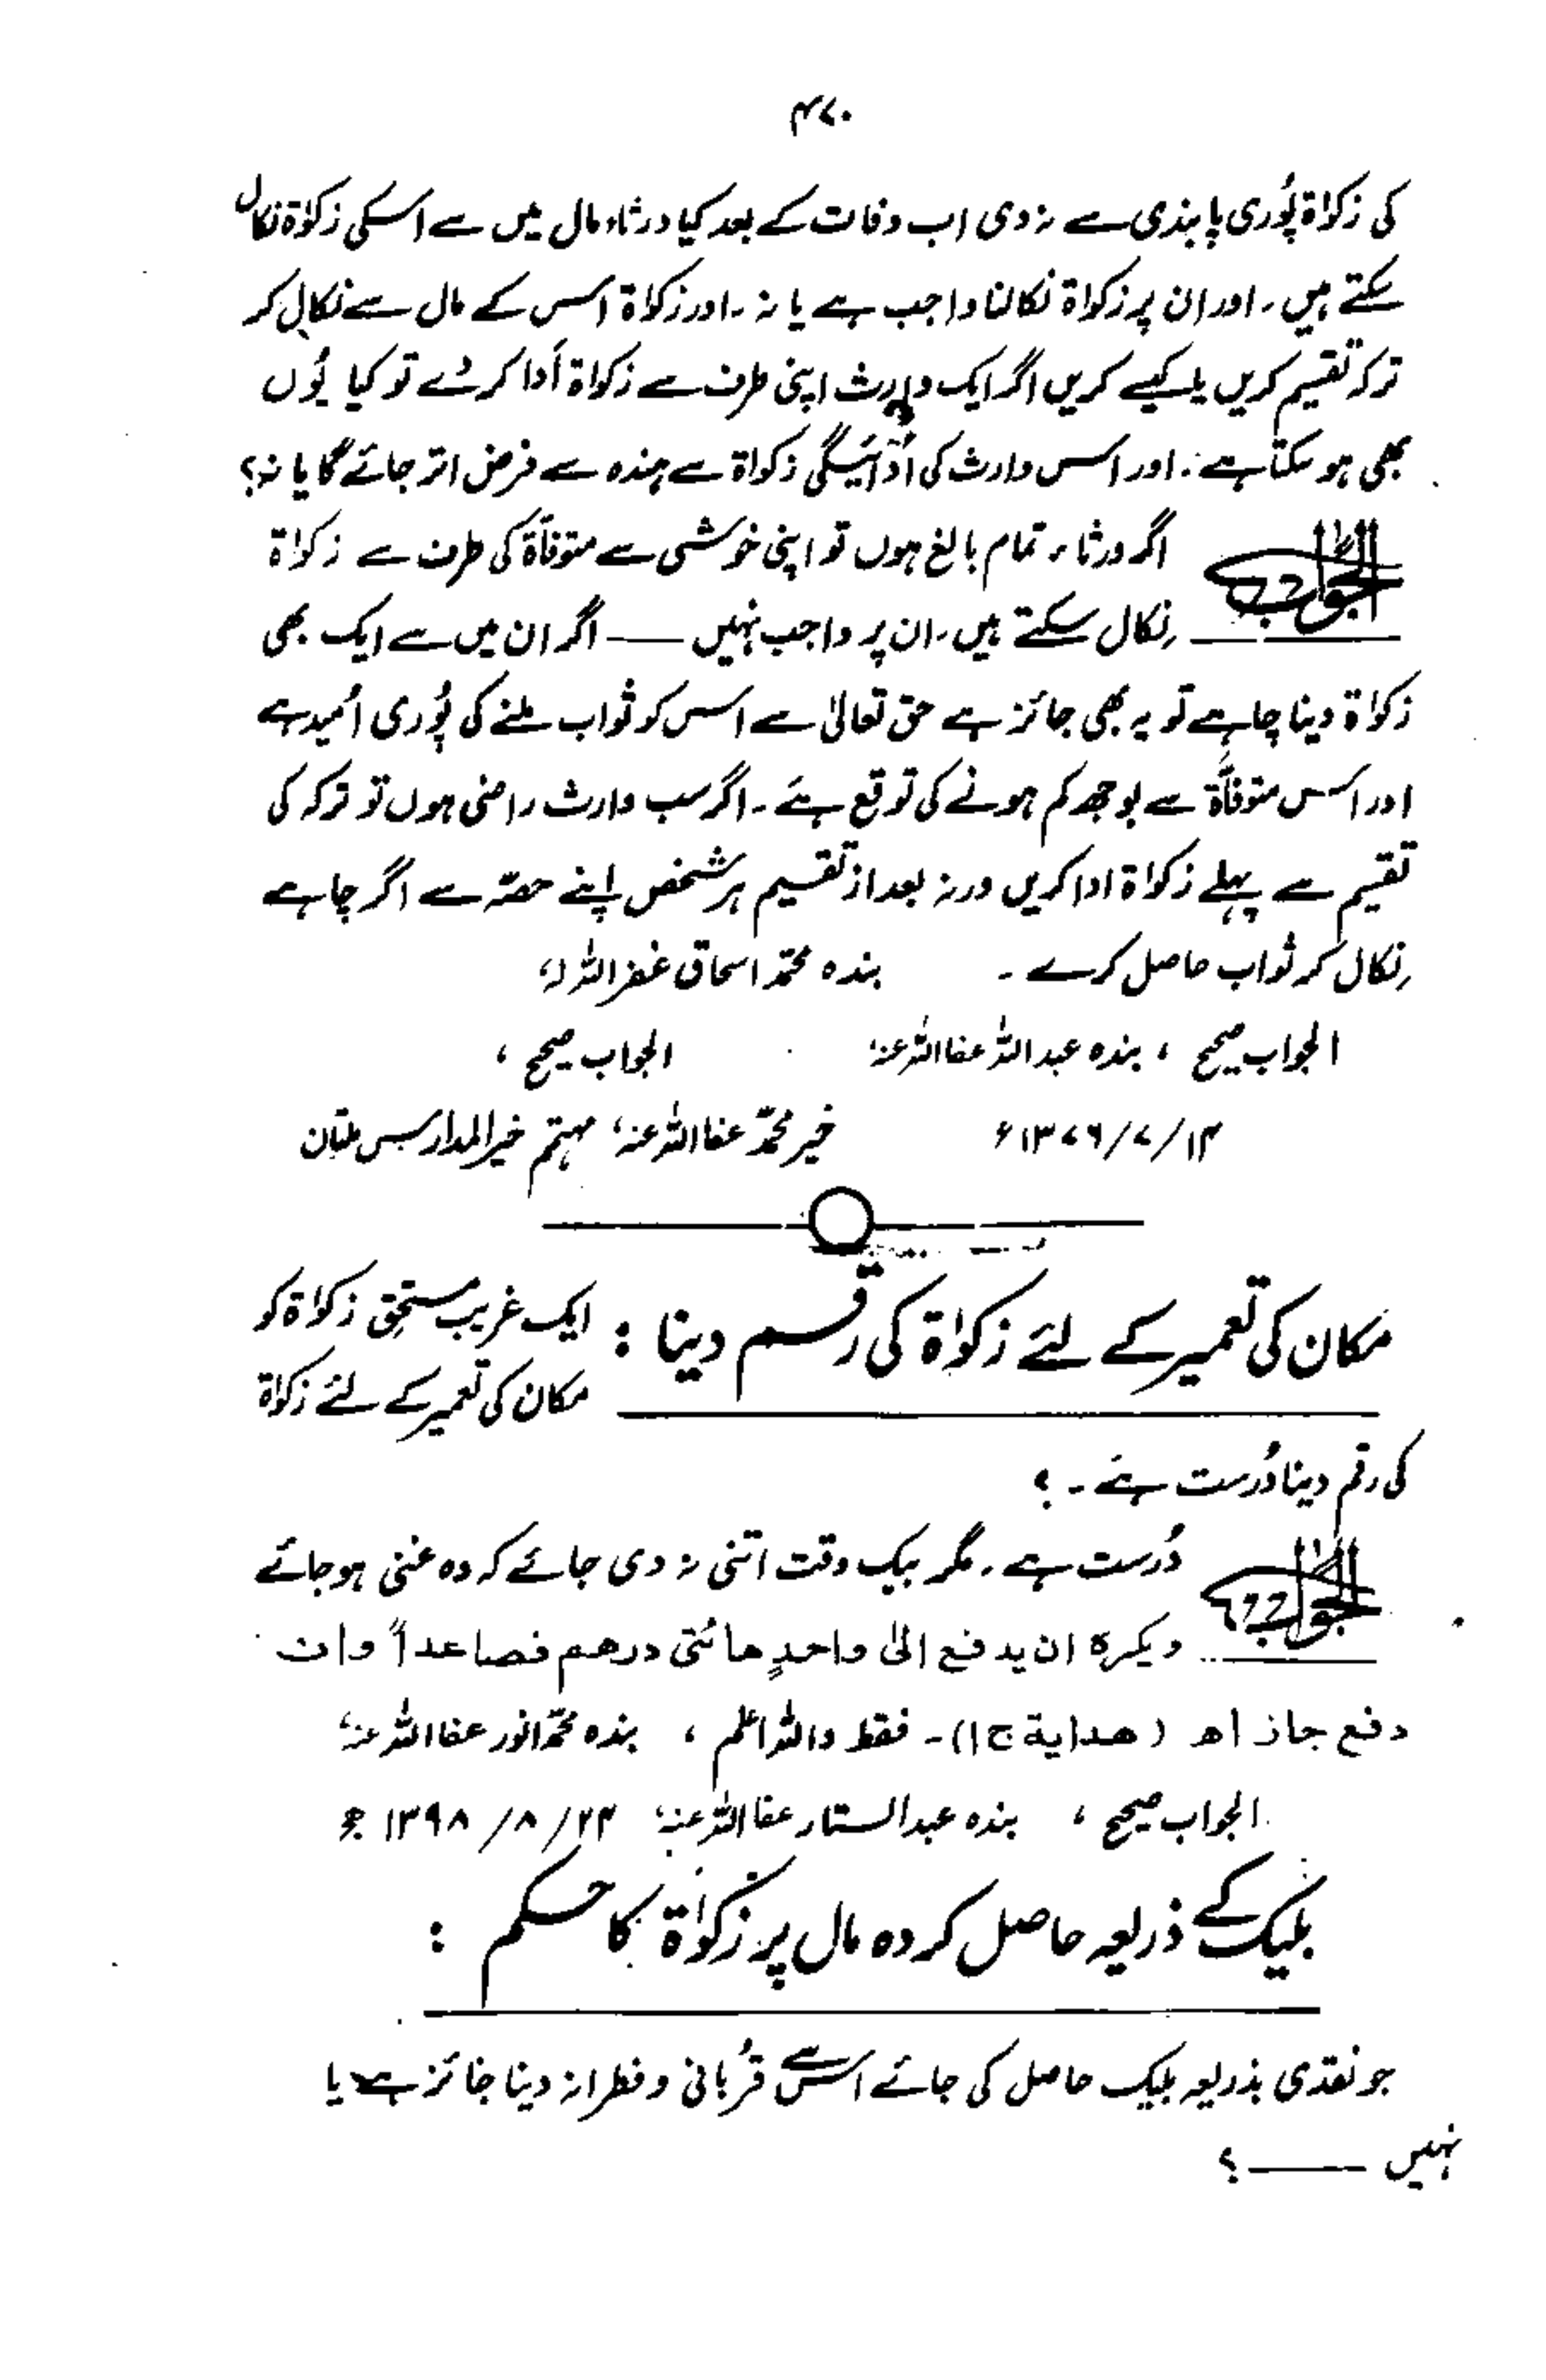 ۴۷۰
کی زکوٰۃ پُوری پابندی سے نہ دی اب وفات کے بعد کیا ورثاء مال میں سے اسکی زکوٰۃ نکال
سکتے ہیں۔ اور ان پر زکوٰۃ نکالنا واجب ہے یا نہ۔ اور زکوٰۃ اس کے مال سے نکال کر
ترکہ تقسیم کریں یا کیسے کریں اگر ایک وارث اپنی طرف سے زکوٰۃ اَدا کر دے تو کیا یُوں
بھی ہو سکتا ہے۔ اور اس وارث کی اَدائیگی زکواۃ سے ہندہ سے فرض اتر جائے گا یا نہ؟
الجواب اگر ورثاء تمام بالغ ہوں تو اپنی خوشی سے متوفاۃ کی طرف سے زکواۃ
نِکال سکتے ہیں، ان پر واجب نہیں —— اگر ان میں سے ایک بھی
زکواۃ دینا چاہے تو یہ بھی جائز ہے حق تعالیٰ سے اس کو ثواب ملنے کی پُوری اُمید ہے
اور اس متوفاۃ سے بوجھ کم ہونے کی توقع ہے۔ اگر سب وارث راضی ہوں تو ترکہ کی
تقسیم سے پہلے زکواۃ ادا کریں ورنہ بعد از تقسیم ہر شخص اپنے حصّہ سے اگر چاہے
نِکال کر ثواب حاصل کرے۔ بندہ محمّد اسحاق غفر اللہ لہٗ
الجواب صحیح ، بندہ عبد اللہ عفا اللہ عنہٗ الجواب صحیح ،
۱۳۷۶/۷/۱۴ء خیر محمّد عفا اللہ عنہٗ مہتمم خیر المدارس ملتان
مکان کی تعمیر کے لئے زکواۃ کی رقم دینا : ایک غریب مستحِق زکوٰۃ کو
مکان کی تعمیر کے لئے زکوٰۃ
کی رقم دینا دُرست ہے۔؟
الجواب دُرست ہے۔ مگر بیک وقت اتنی نہ دی جائے کہ وہ غنی ہو جائے
ویکرہ ان یدفع الیٰ واحدٍ مائتی درھم فصاعداً وان
دفع جاز اھ (ھدایة ج ۱)۔ فقط واللہ اعلم ، بندہ محمّد انور عفا اللہ عنہٗ
الجواب صحیح ، بندہ عبد الستار عفا اللہ عنہٗ ۱۳۹۸/۸/۲۳ھ
بلیک کے ذریعہ حاصل کردہ مال پر زکوٰۃ کا حکم :
جو نقدی بذریعہ بلیک حاصل کی جائے اس سے قُربانی و فطرانہ دینا جائز ہے یا
نہیں —— ؟